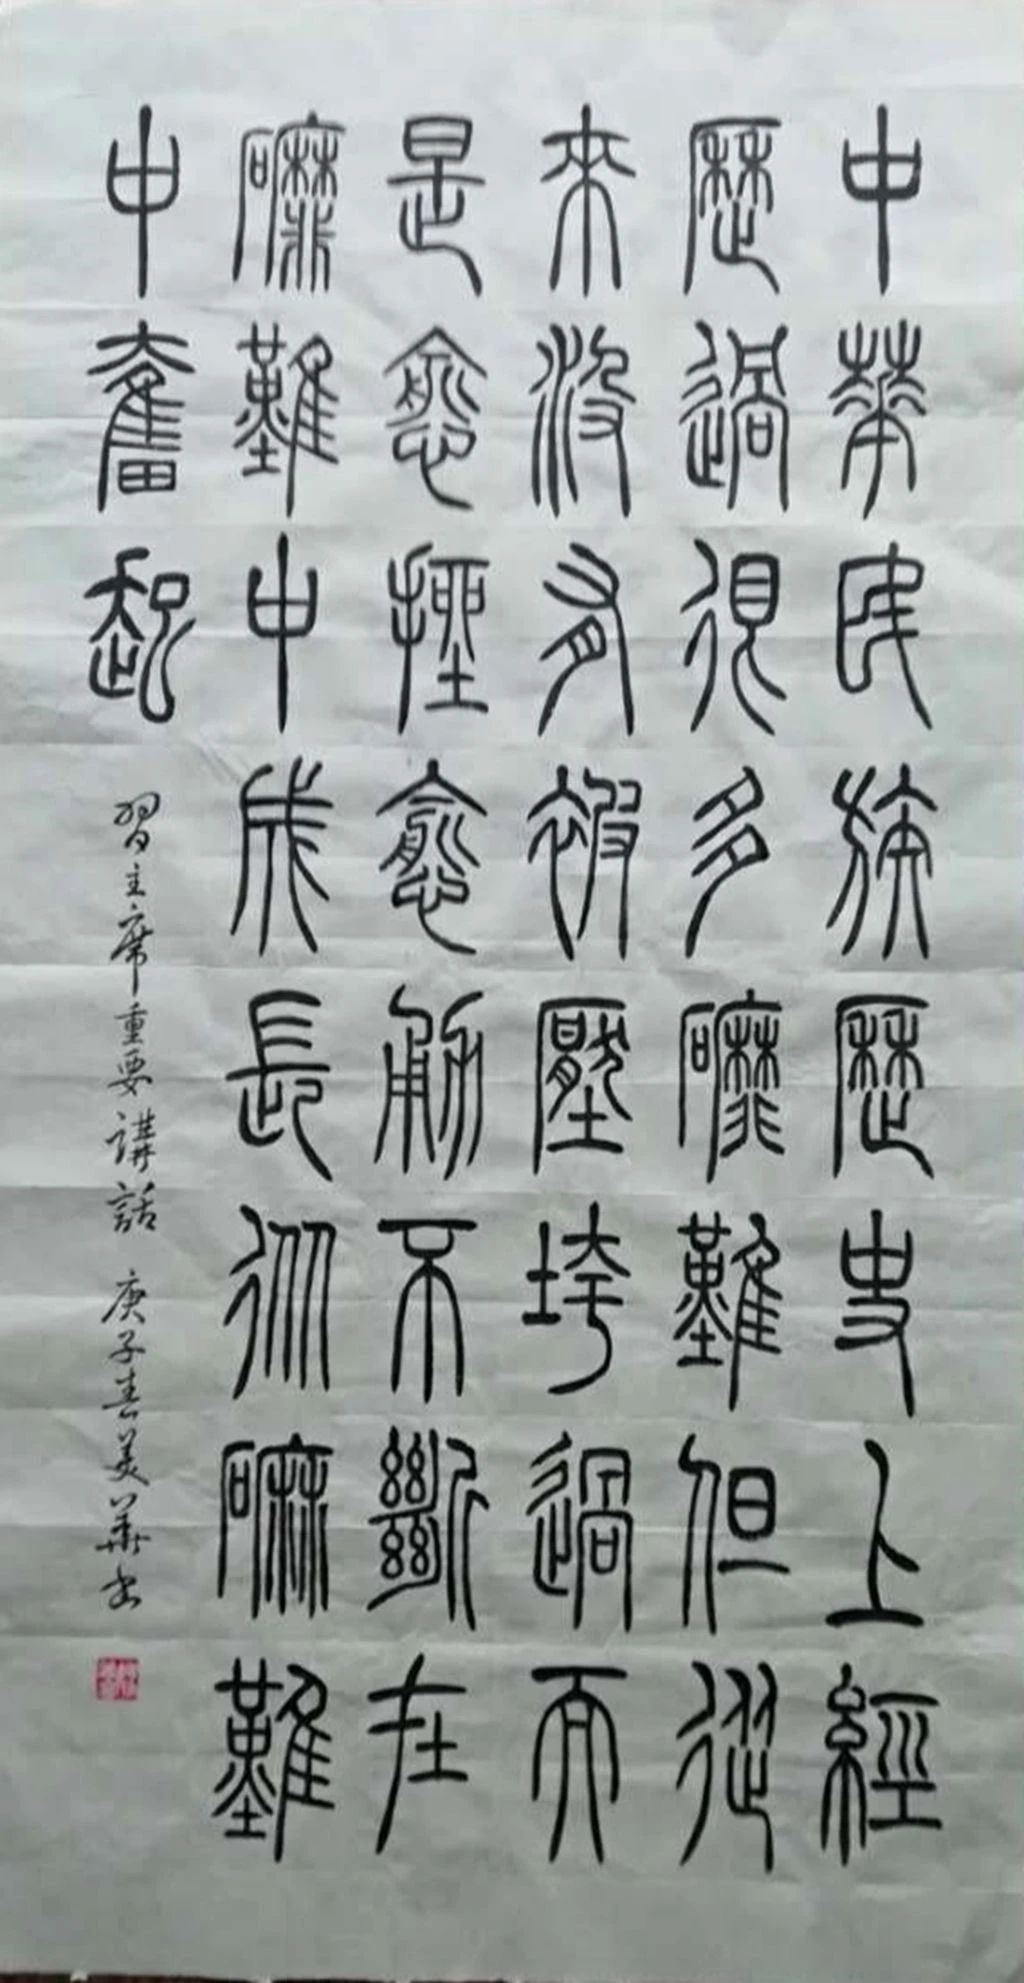 中華民族歷史上經
歷過很多磨難但從
來沒有被壓垮過而
是愈挫愈勇不斷在
磨難中成長從磨難
中奮起
習主席重要講話 庚子春美華書